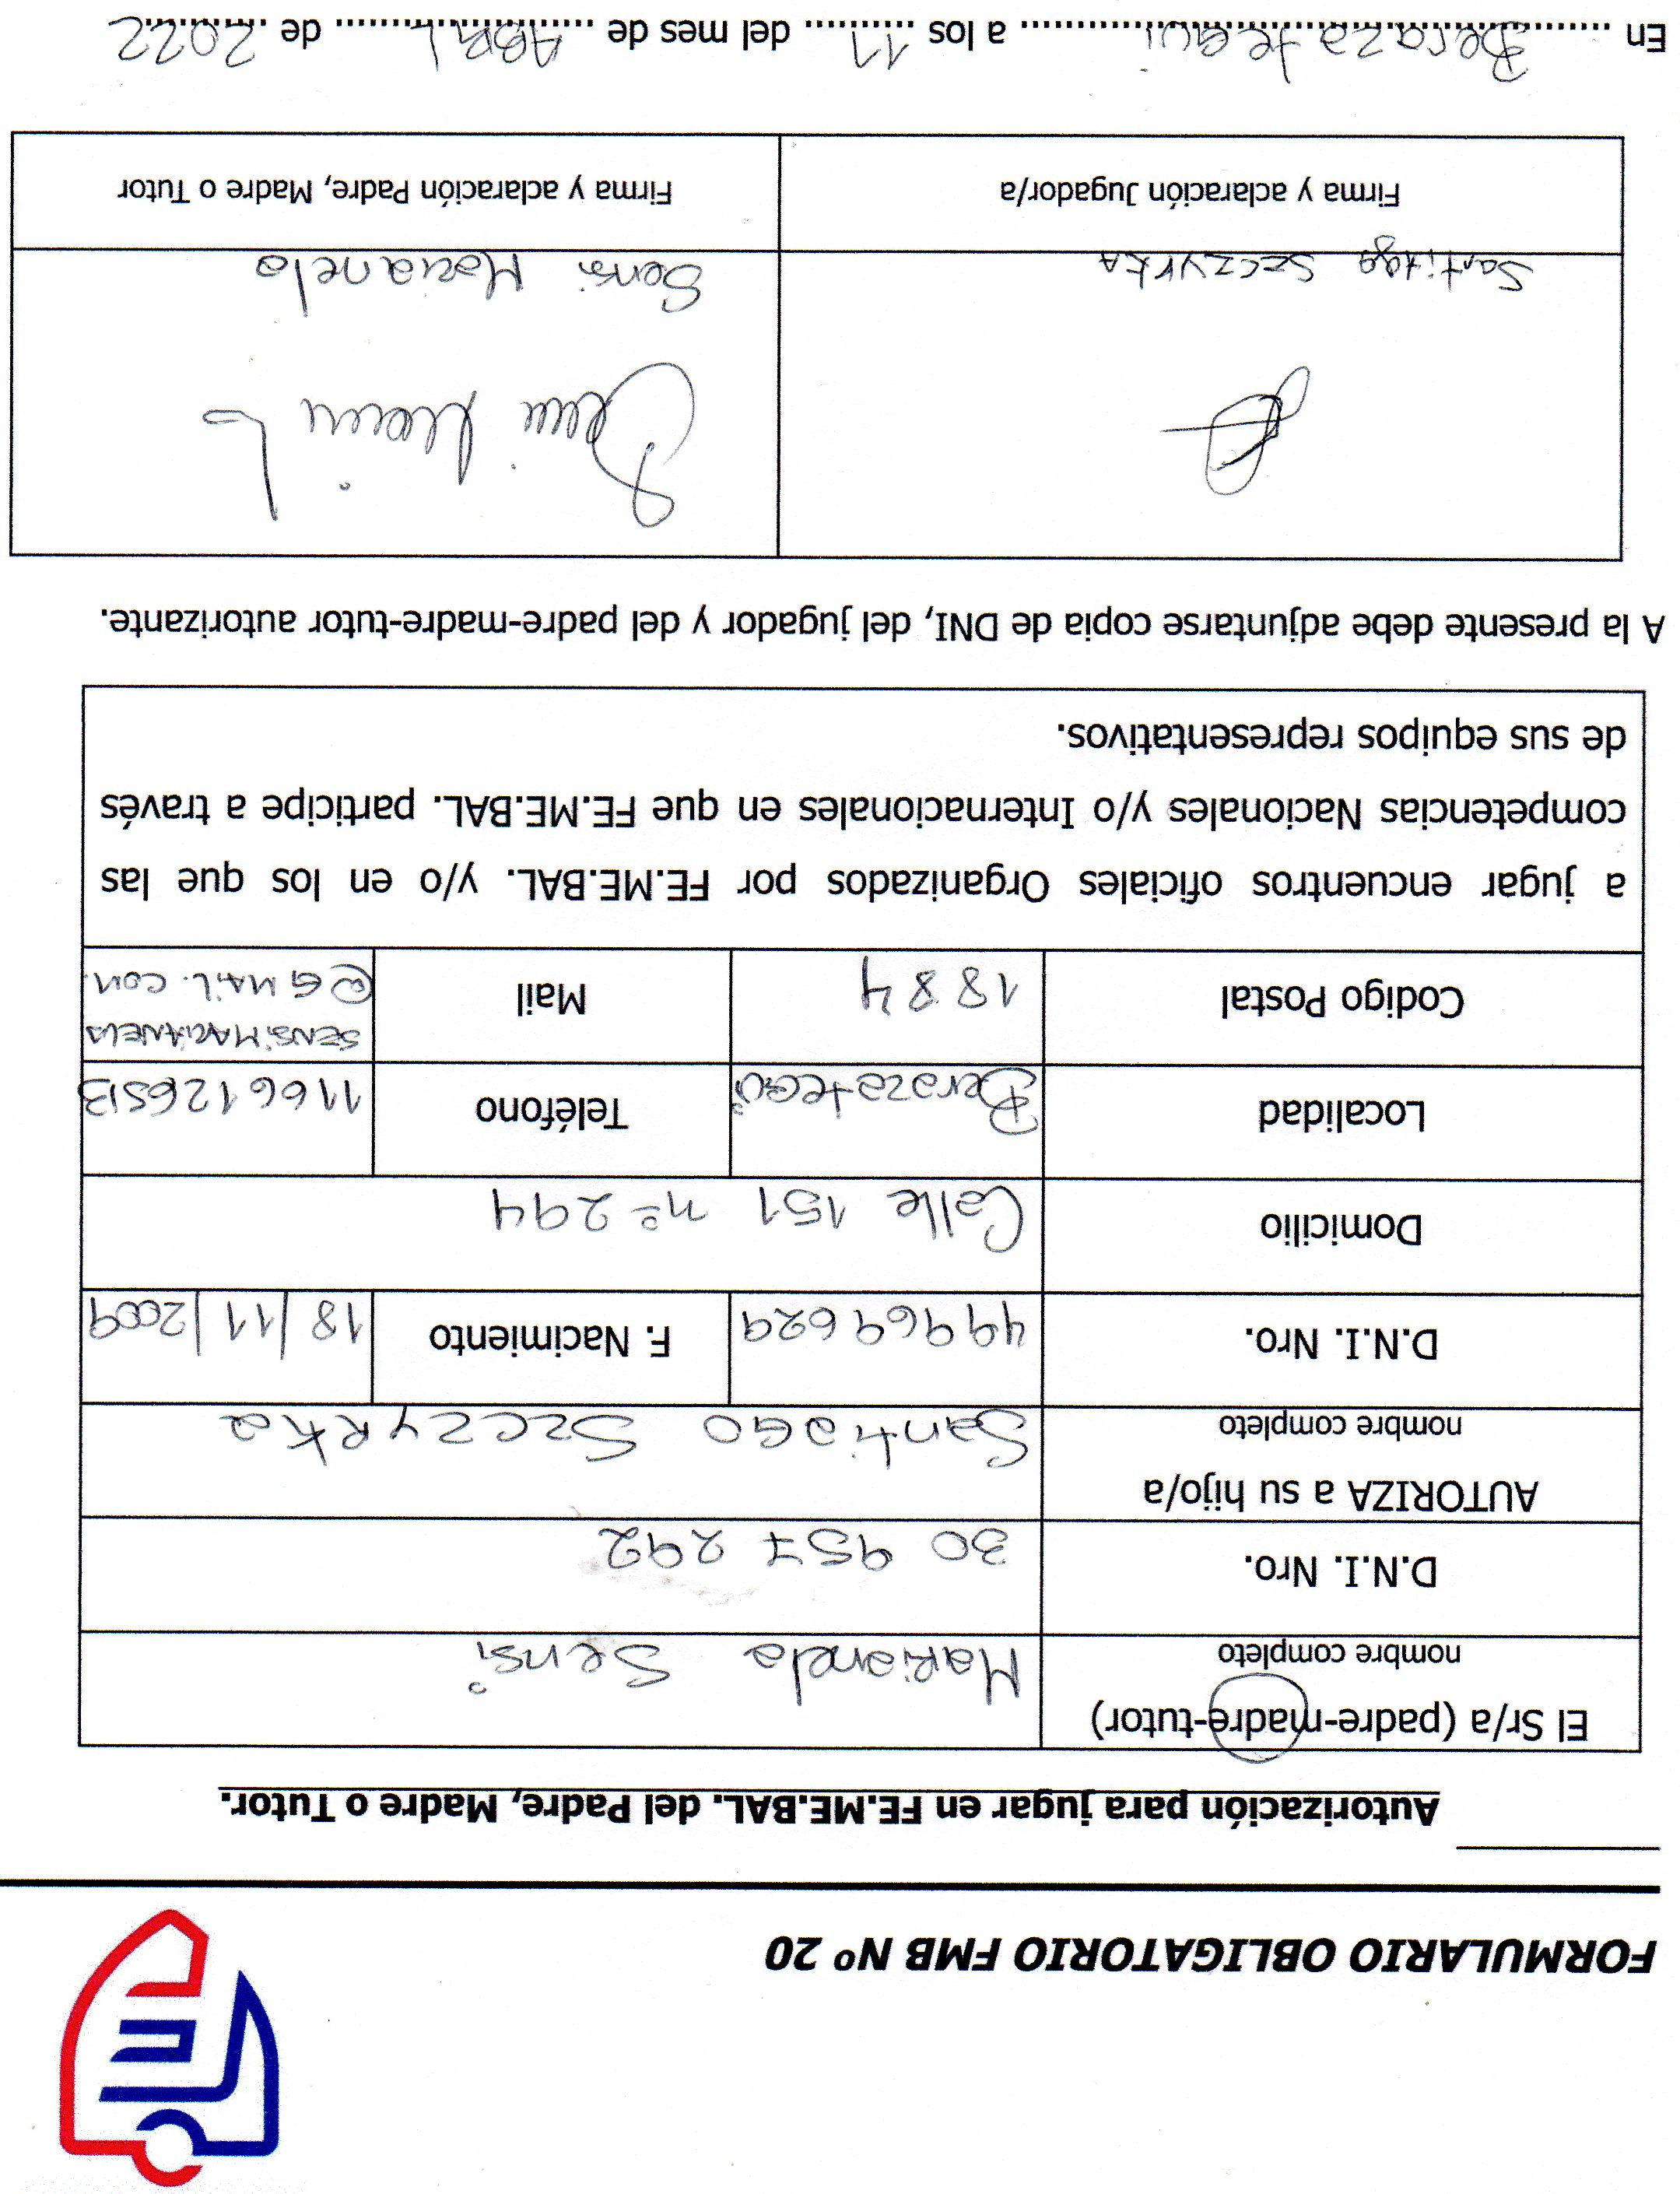 FORMULARIO OBLIGATORIO FMB Nº 20
Autorización para jugar en FE.ME.BAL. del Padre, Madre o Tutor.
El Sr/a (padre-madre-tutor)
nombre completo
Marianela Sensi
D.N.I. Nro.
30 957 292
AUTORIZA a su hijo/a
nombre completo
Santiago Szczyrka
D.N.I. Nro.
49969629
F. Nacimiento
18/11/2009
Domicilio
Calle 151 nº 294
Localidad
Berazategui
Teléfono
1166126513
Codigo Postal
1884
Mail
SENSIMARIANELA
@GMAIL.COM.
a jugar encuentros oficiales Organizados por FE.ME.BAL. y/o en los que las
competencias Nacionales y/o Internacionales en que FE.ME.BAL. participe a través
de sus equipos representativos.
A la presente debe adjuntarse copia de DNI, del jugador y del padre-madre-tutor autorizante.
Santiago Szczyrka
Sensi Marianela
Firma y aclaración Jugador/a
Firma y aclaración Padre, Madre o Tutor
En Berazategui a los 11 del mes de ABRIL de 2022